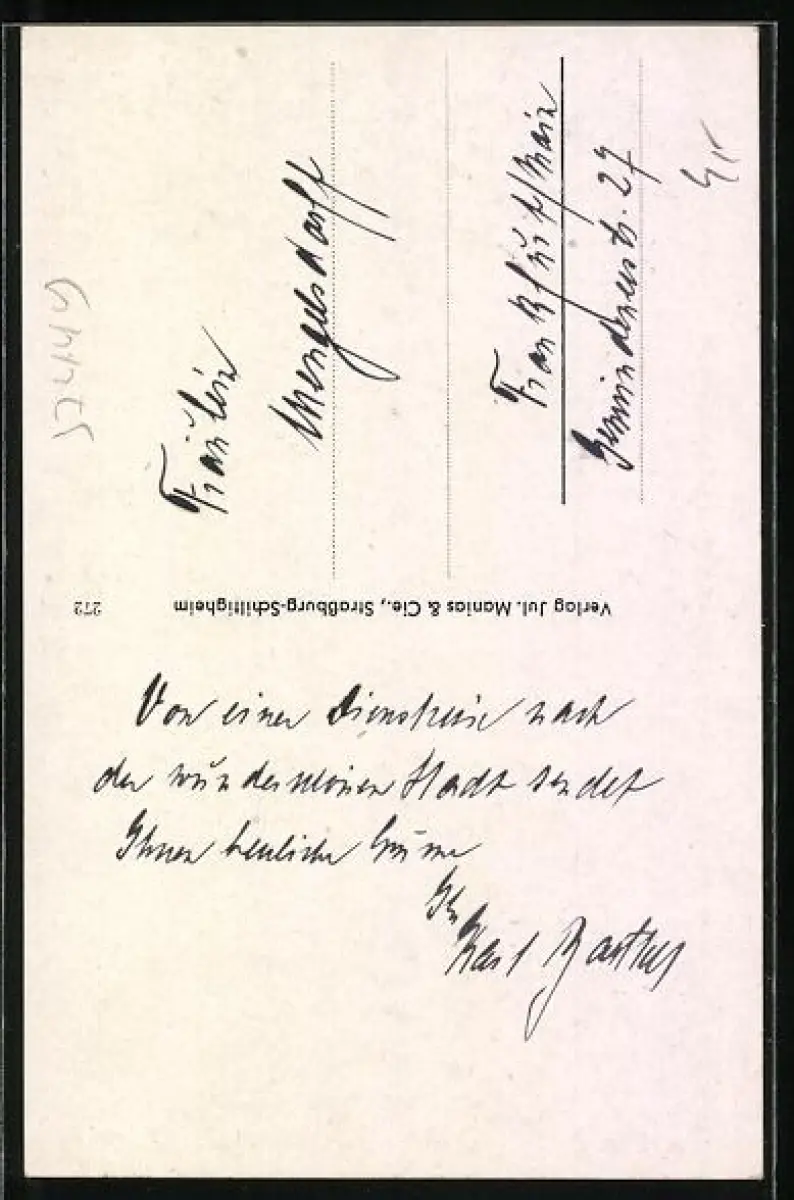 Fräulein
Mengelsdorff
Frankfurt/Main
27
Verlag Jul. Manias & Cie., Straßburg-Schiltigheim
272
Von einer Dienstreise nach
der wunderschönen Stadt sendet
Ihnen herzliche Grüsse
Ihr
Karl Barthel